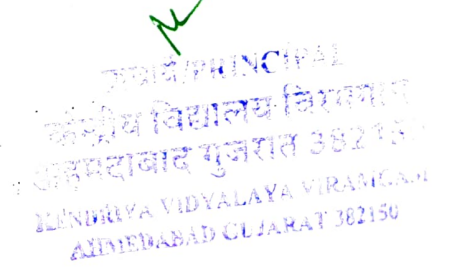 प्राचार्य/PRINCIPAL
केन्द्रीय विद्यालय विरमगाम
अहमदाबाद गुजरात 382150
KENDRIYA VIDYALAYA VIRAMGAM
AHMEDABAD GUJARAT 382150